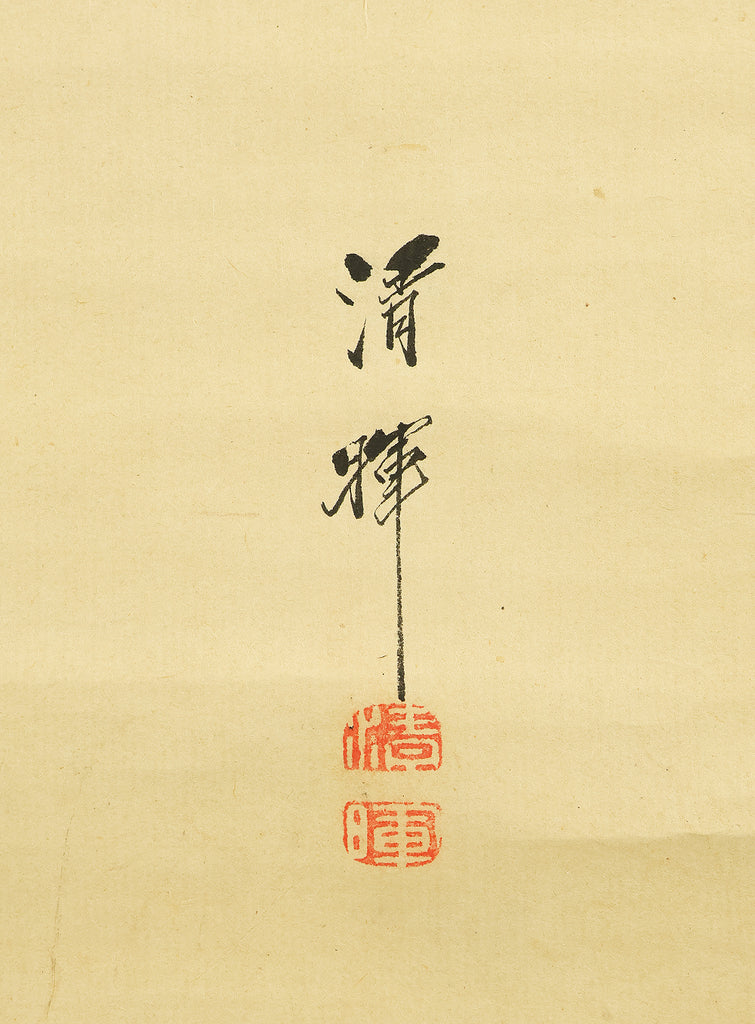 清
暉
清
暉